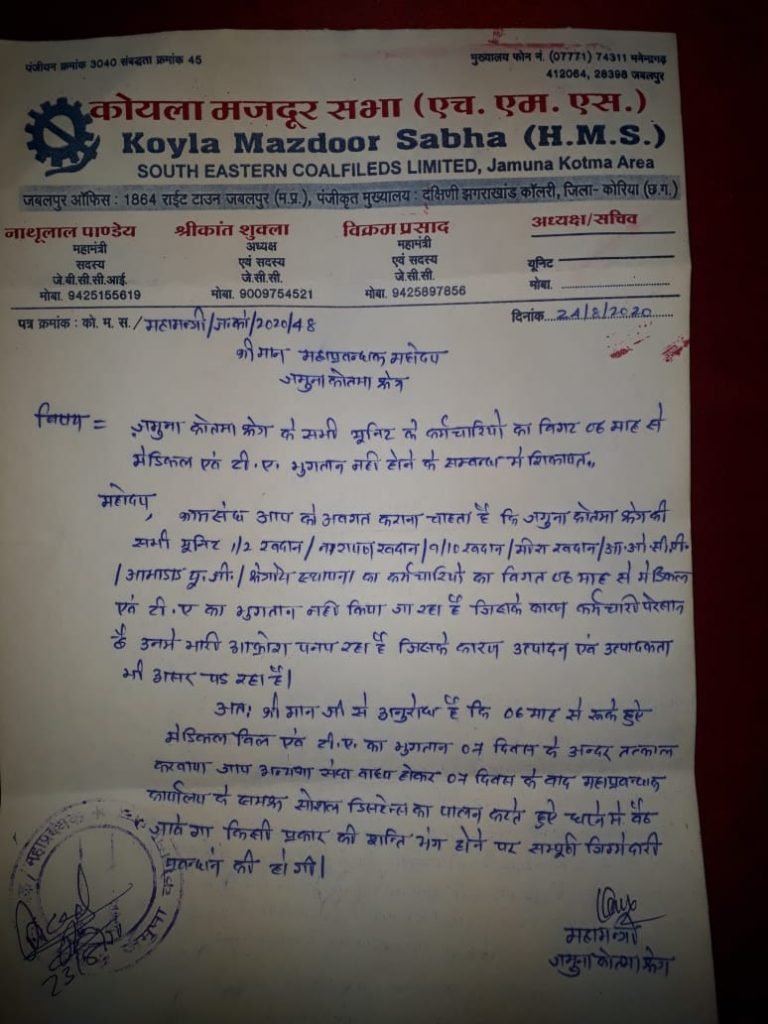 पंजीयन क्रमांक 3040 संबद्धता क्रमांक 45
मुख्यालय फोन नं. (07771) 74311 मनेन्द्रगढ़
412064, 28398 जबलपुर
कोयला मजदूर सभा (एच. एम. एस.)
Koyla Mazdoor Sabha (H.M.S.)
SOUTH EASTERN COALFILEDS LIMITED, Jamuna Kotma Area
जबलपुर ऑफिस : 1864 राईट टाउन जबलपुर (म.प्र.), पंजीकृत मुख्यालय : दक्षिणी झगराखांड कॉलरी, जिला- कोरिया (छ.ग.)
नाथूलाल पाण्डेय
महामंत्री
सदस्य
जे.बी.सी.सी.आई.
मोबा. 9425155619
श्रीकांत शुक्ला
अध्यक्ष
एवं सदस्य
जे.सी.सी.
मोबा. 9009754521
विक्रम प्रसाद
महामंत्री
एवं सदस्य
जे.सी.सी.
मोबा. 9425897856
अध्यक्ष/सचिव
यूनिट
मोबा.
पत्र क्रमांक : को. म. स./महामन्त्री/ज.को/2020/48
दिनांक...24/8/2020
श्रीमान महाप्रबन्धक महोदय
जमुना कोतमा क्षेत्र
विषय = जमुना कोतमा क्षेत्र के सभी यूनिट के कर्मचारियों का विगत 06 माह से
मेडिकल एवं टी.ए. भुगतान नहीं होने के सम्बन्ध में शिकायत,,
महोदय,
कामसंघ आप को अवगत कराना चाहता है कि जमुना कोतमा क्षेत्र की
सभी यूनिट 1/2 खदान/ खदान/9/10 खदान/मीरा खदान/आ.ओ.सी.पी.
/आमाडांड यू.जी./क्षेत्रीय स्थापना का कर्मचारियों का विगत 06 माह से मेडिकल
एवं टी.ए का भुगतान नहीं किया जा रहा है जिसके कारण कर्मचारी परेशान
है उनमें भारी आक्रोश पनप रहा है जिसके कारण उत्पादन एवं उत्पादकता
भी असर पड रहा है।
अतः श्रीमान जी से अनुरोध है कि 06 माह से रूके हुऐ
मेडिकल बिल एवं टी.ए. का भुगतान 07 दिवस के अन्दर तत्काल
करवाया जाय अन्यथा संघ बाध्य होकर 07 दिवस के बाद महाप्रबन्धक
कार्यालय के समक्ष सोशल डिसटेन्स का पालन करते हुऐ धरने में बैठ
जावेगा किसी प्रकार की शान्ति भंग होने पर सम्पूर्ण जिम्मेदारी
प्रबन्धन की होगी।
महामन्त्री
जमुना कोतमा क्षेत्र